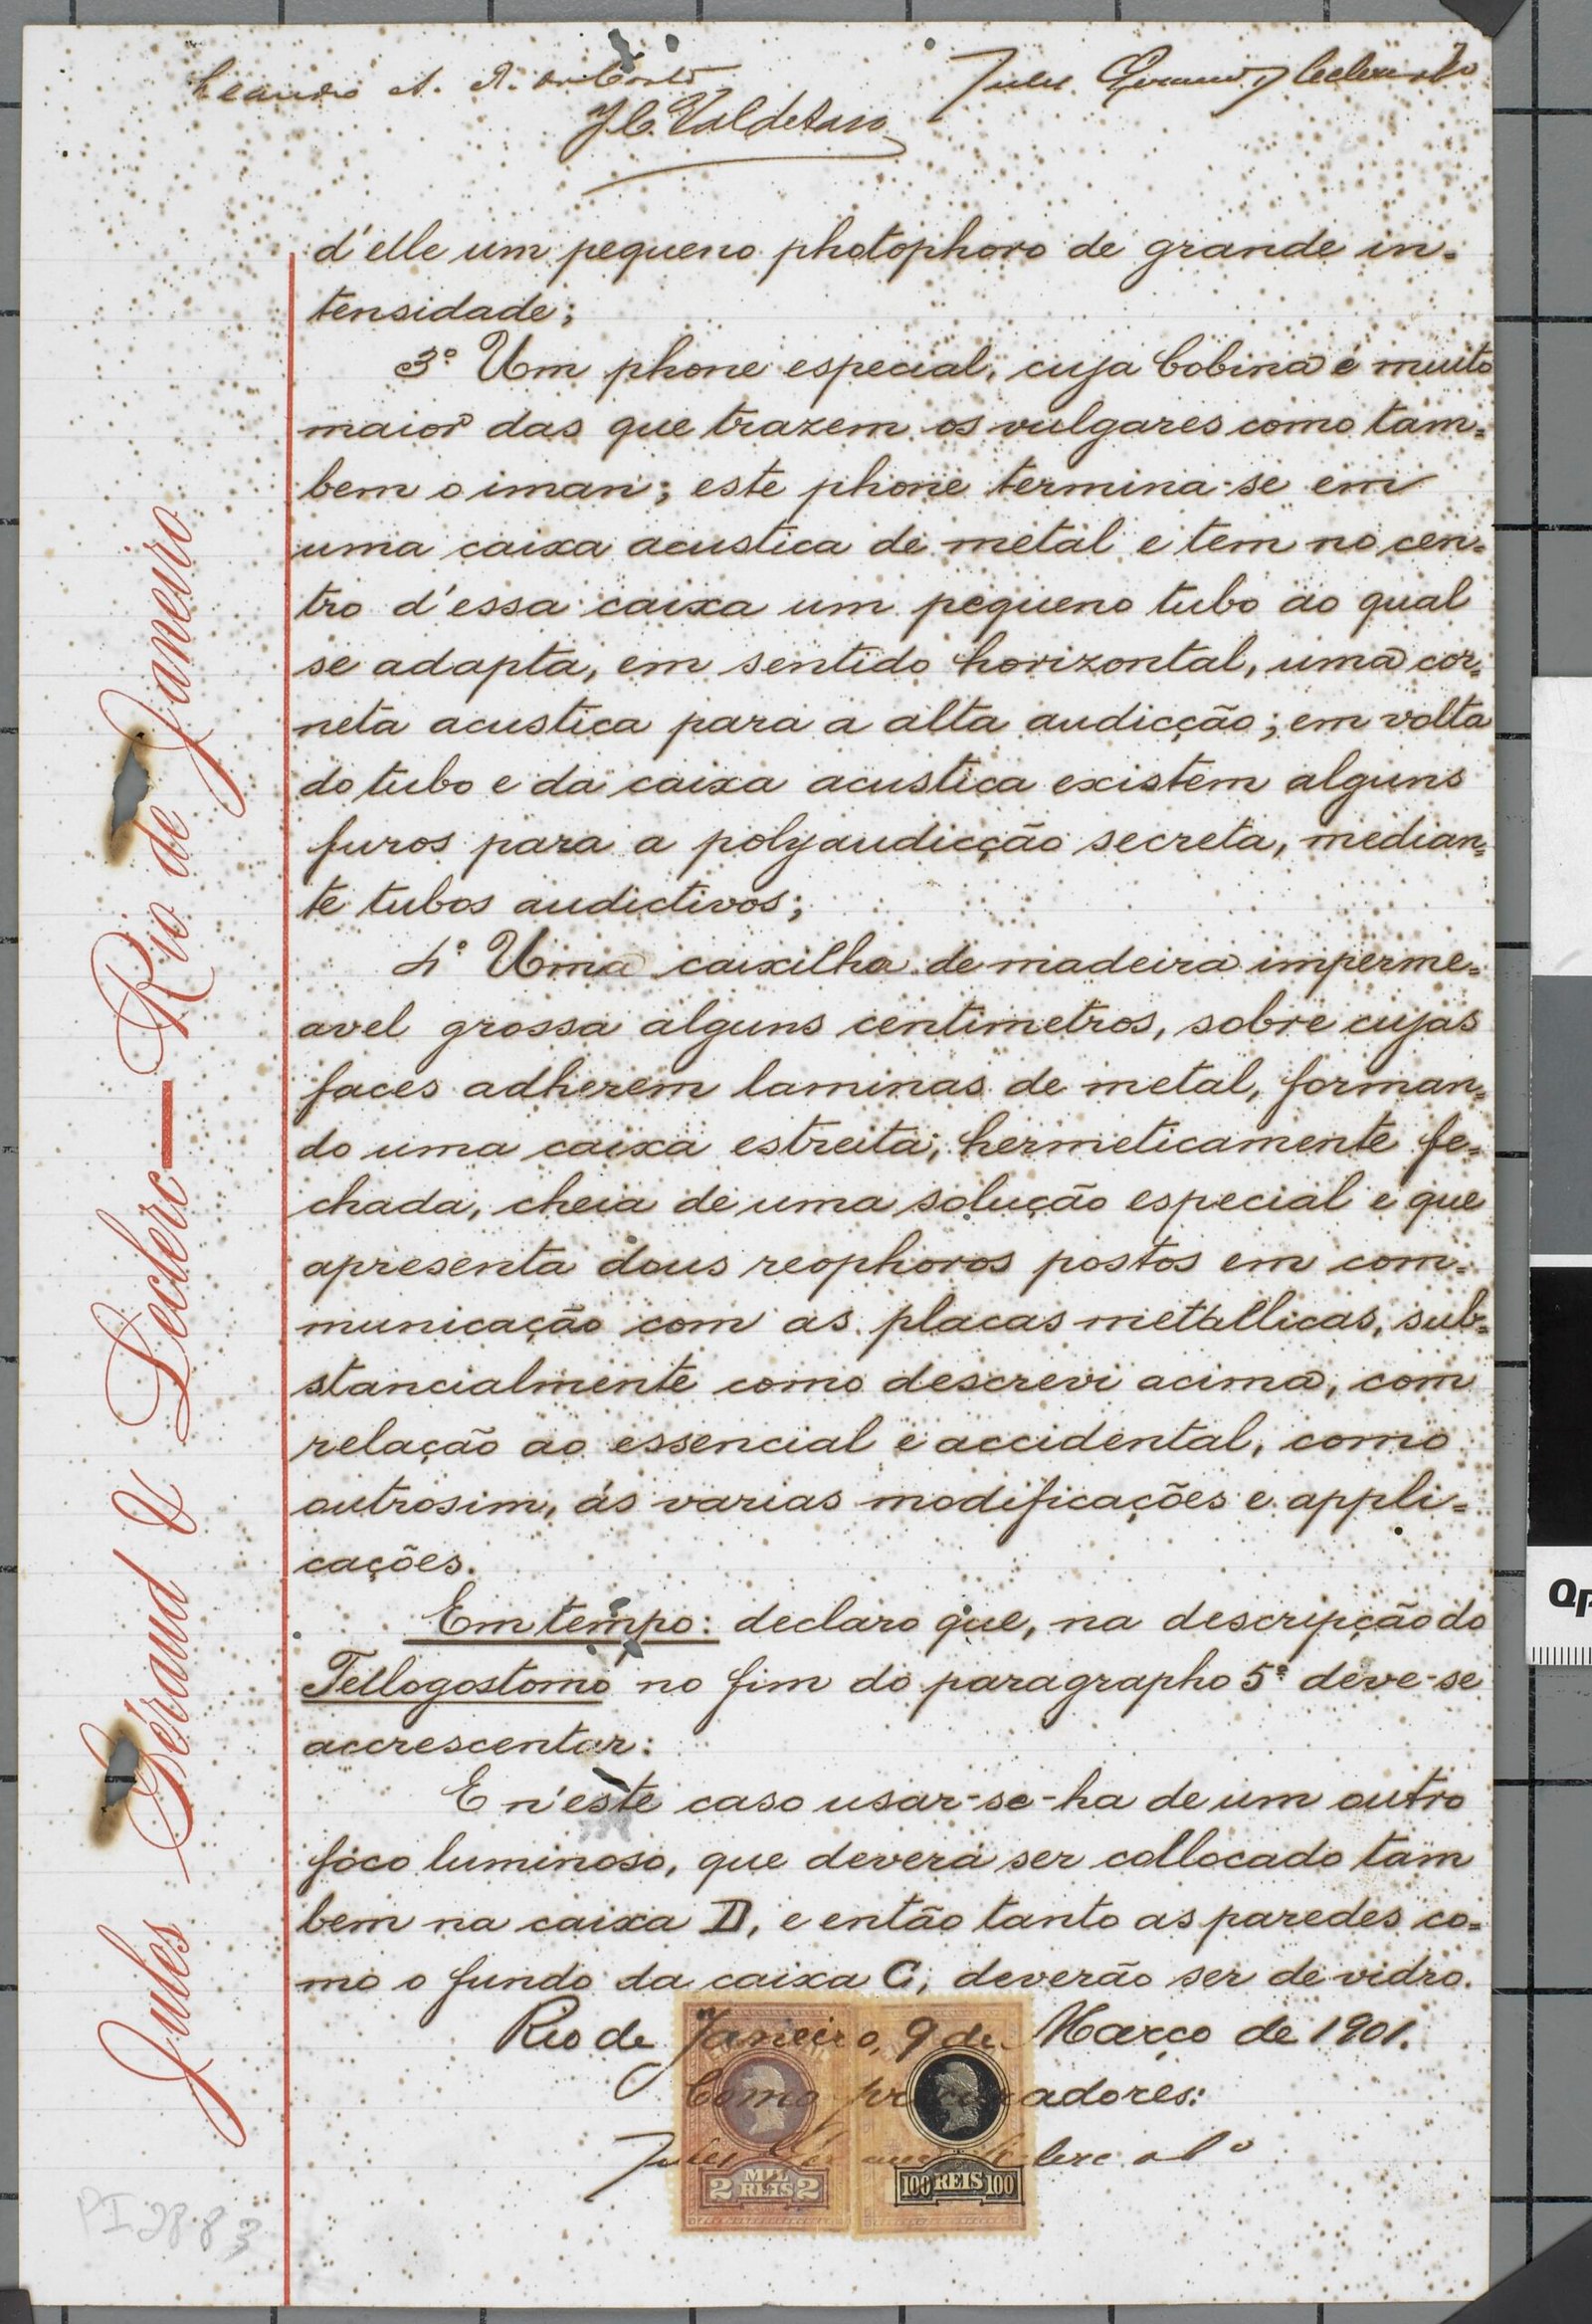 Leandro A. R. da Costa
Jules Géraud Leclerc & Cº
J. C. Valdetaro
d'elle um pequeno photophoro de grande in=
tensidade;
3º Um phone especial, cuja bobina é muito
maior das que trazem os vulgares como tam=
bem o iman; este phone termina-se em
uma caixa acustica de metal e tem no cen=
tro d'essa caixa um pequeno tubo ao qual
se adapta, em sentido horizontal, uma cor=
neta acustica para a alta audicção; em volta
do tubo e da caixa acustica existem alguns
furos para a polyaudicção secreta, median=
te tubos audictivos;
4º Uma caixilha de madeira imperme=
avel grossa alguns centimetros, sobre cujas
faces adherem laminas de metal, forman=
do uma caixa estreita, hermeticamente fe=
chada, cheia de uma solução especial e que
apresenta dous reophoros postos em com=
municação com as placas metallicas, sub=
stancialmente como descrevi acima, com
relação ao essencial e accidental, como
outrosim, ás varias modificações e appli=
cações.
Em tempo: declaro que, na descripção do
Tellogostomo no fim do paragrapho 5º deve-se
accrescentar:
E n'este caso usar-se-ha de um outro
fóco luminoso, que deverá ser collocado tam
bem na caixa D, e então tanto as paredes co=
mo o fundo da caixa C, deverão ser de vidro.
Rio de Janeiro, 9 de Março de 1901.
Como procuradores:
Jules Géraud Leclerc & Cº
2 MIL REIS 2
100 REIS 100
Jules Géraud & Leclerc — Rio de Janeiro
PI 2883
Op